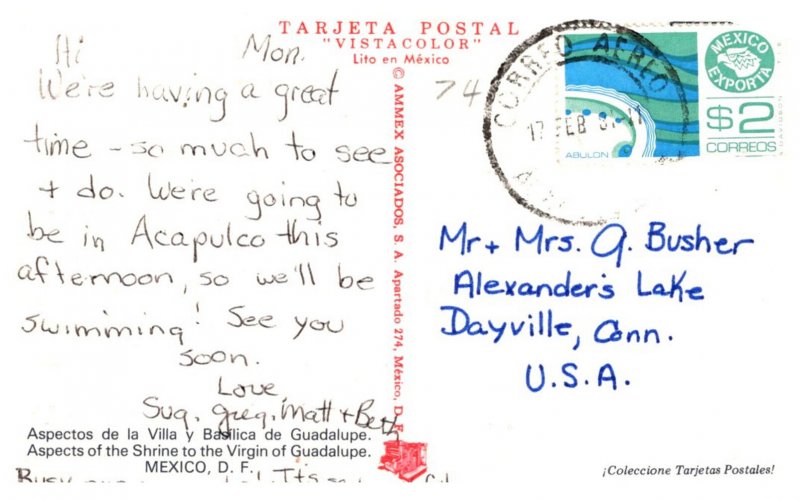 TARJETA POSTAL
"VISTACOLOR"
Lito en México
Hi Mon.
We're having a great
time - so much to see
+ do. We're going to
be in Acapulco this
afternoon, so we'll be
swimming! See you
soon.
Love
Sug, Greg, Matt + Beth
Aspectos de la Villa y Basílica de Guadalupe.
Aspects of the Shrine to the Virgin of Guadalupe.
MEXICO, D. F.
© AMMEX ASOCIADOS, S. A. Apartado 274, México, D. F.
74
CORREO AEREO
17 FEB 81-11
ABULON
MEXICO
EXPORTA
$2
CORREOS
Mr + Mrs. G. Busher
Alexander's Lake
Dayville, Conn.
U.S.A.
¡Coleccione Tarjetas Postales!